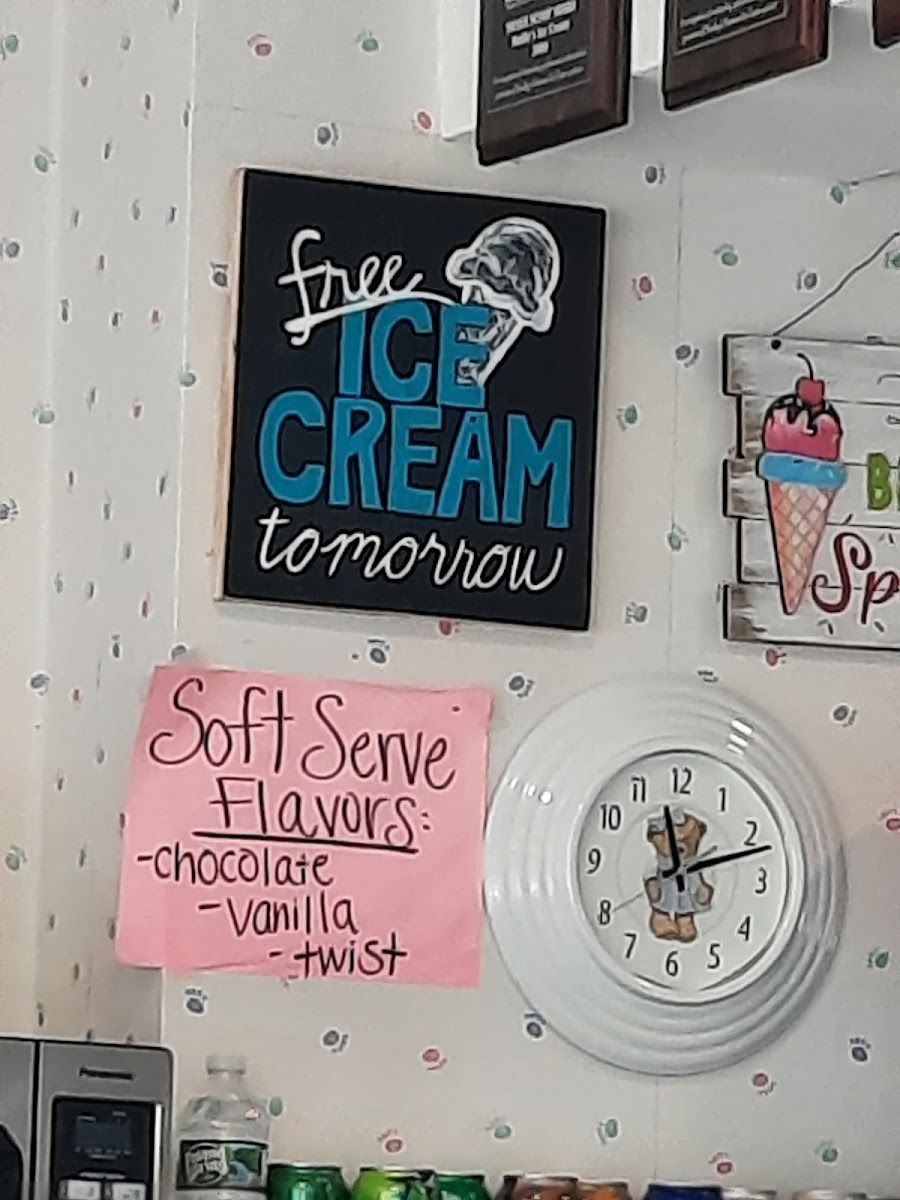 free
ICE
CREAM
tomorrow
Soft Serve
Flavors:
-chocolate
-vanilla
-twist
12
1
2
3
4
5
6
7
8
9
10
11
Sp
Panasonic